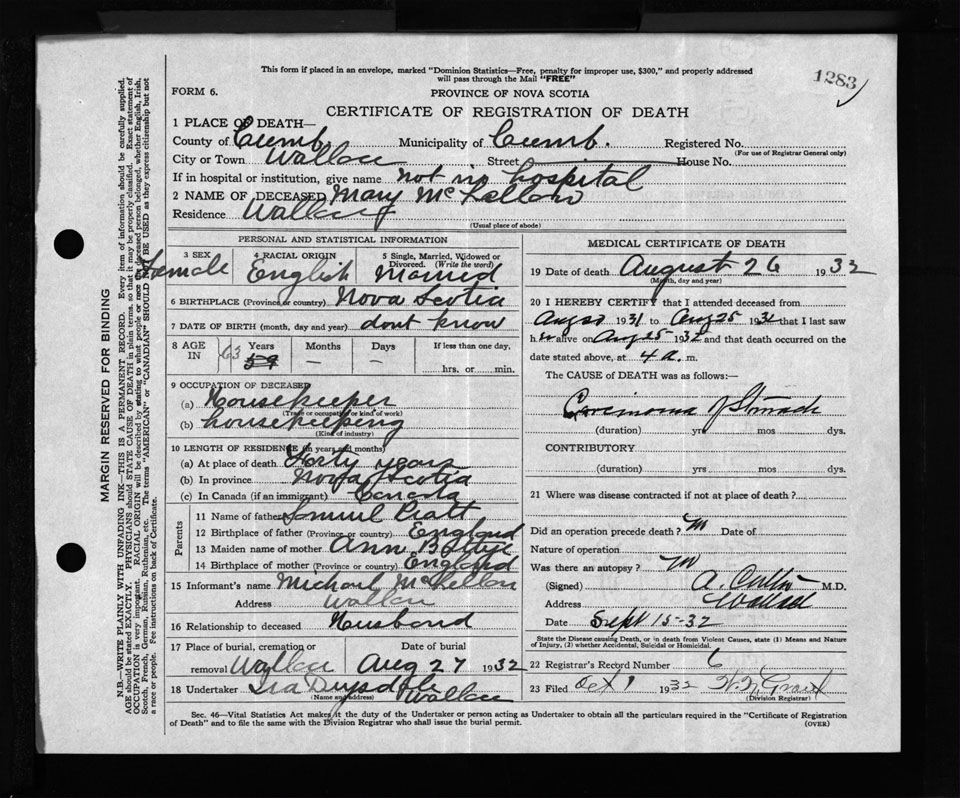 This form if placed in an envelope, marked "Dominion Statistics—Free, penalty for improper use, $300," and properly addressed
will pass through the Mail "FREE"
1283
FORM 6.
PROVINCE OF NOVA SCOTIA
CERTIFICATE OF REGISTRATION OF DEATH
1 PLACE OF DEATH—
County of Cumb Municipality of Cumb. Registered No.
(For use of Registrar General only)
City or Town Wallace Street House No.
If in hospital or institution, give name not in hospital
2 NAME OF DECEASED Mary McKellar
Residence Wallace
(Usual place of abode)
PERSONAL AND STATISTICAL INFORMATION
3 SEX 4 RACIAL ORIGIN 5 Single, Married, Widowed or Divorced. (Write the word)
Female English Married
6 BIRTHPLACE (Province or country) Nova Scotia
7 DATE OF BIRTH (month, day and year) dont know
8 AGE IN Years Months Days If less than one day,
63 59 — — hrs. or min.
9 OCCUPATION OF DECEASED
(a) Housekeeper
(Trade or occupation or kind of work)
(b) housekeeping
(Kind of industry)
10 LENGTH OF RESIDENCE (in years and months)
(a) At place of death Forty years
(b) In province Nova Scotia
(c) In Canada (if an immigrant) Canada
Parents
11 Name of father Samuel Piatt
12 Birthplace of father (Province or country) England
13 Maiden name of mother Ann
14 Birthplace of mother (Province or country) England
15 Informant's name Michael McKellar
Address Wallace
16 Relationship to deceased Husband
17 Place of burial, cremation or removal Wallace Date of burial Aug 27 1932
18 Undertaker Ira Wallace
(Name and address)
MEDICAL CERTIFICATE OF DEATH
19 Date of death August 26 1932
(Month, day and year)
20 I HEREBY CERTIFY that I attended deceased from
Aug 1931 to Aug 25 1932 that I last saw
her alive on Aug 25 1932 and that death occurred on the
date stated above, at 4 a. m.
The CAUSE of DEATH was as follows:—
Carcinoma of Stomach
(duration) yrs mos dys.
CONTRIBUTORY
(duration) yrs mos dys.
21 Where was disease contracted if not at place of death?
Did an operation precede death? No Date of
Nature of operation
Was there an autopsy? No
(Signed) A. M.D.
Address Wallace
Date Sept 15-32
State the Disease causing Death, or in death from Violent Causes, state (1) Means and Nature
of Injury, (2) whether Accidental, Suicidal or Homicidal.
22 Registrar's Record Number 6
23 Filed Oct 1 1932
(Division Registrar)
Sec. 46—Vital Statistics Act makes it the duty of the Undertaker or person acting as Undertaker to obtain all the particulars required in the "Certificate of Registration
of Death" and to file the same with the Division Registrar who shall issue the burial permit. (OVER)
MARGIN RESERVED FOR BINDING
N.B.—WRITE PLAINLY WITH UNFADING INK—THIS IS A PERMANENT RECORD. Every item of information should be carefully supplied.
AGE should be stated EXACTLY. PHYSICIANS should STATE CAUSE OF DEATH in plain terms, so that it may be properly classified. Exact statement of
OCCUPATION is very important. RACIAL ORIGIN will be described by stating to what people or race the deceased person belonged, whether English, Irish,
Scotch, French, German, Russian, Ruthenian, etc. The terms "AMERICAN" or "CANADIAN" SHOULD NOT BE USED as they express citizenship but not
a race or people. See instructions on back of Certificate.